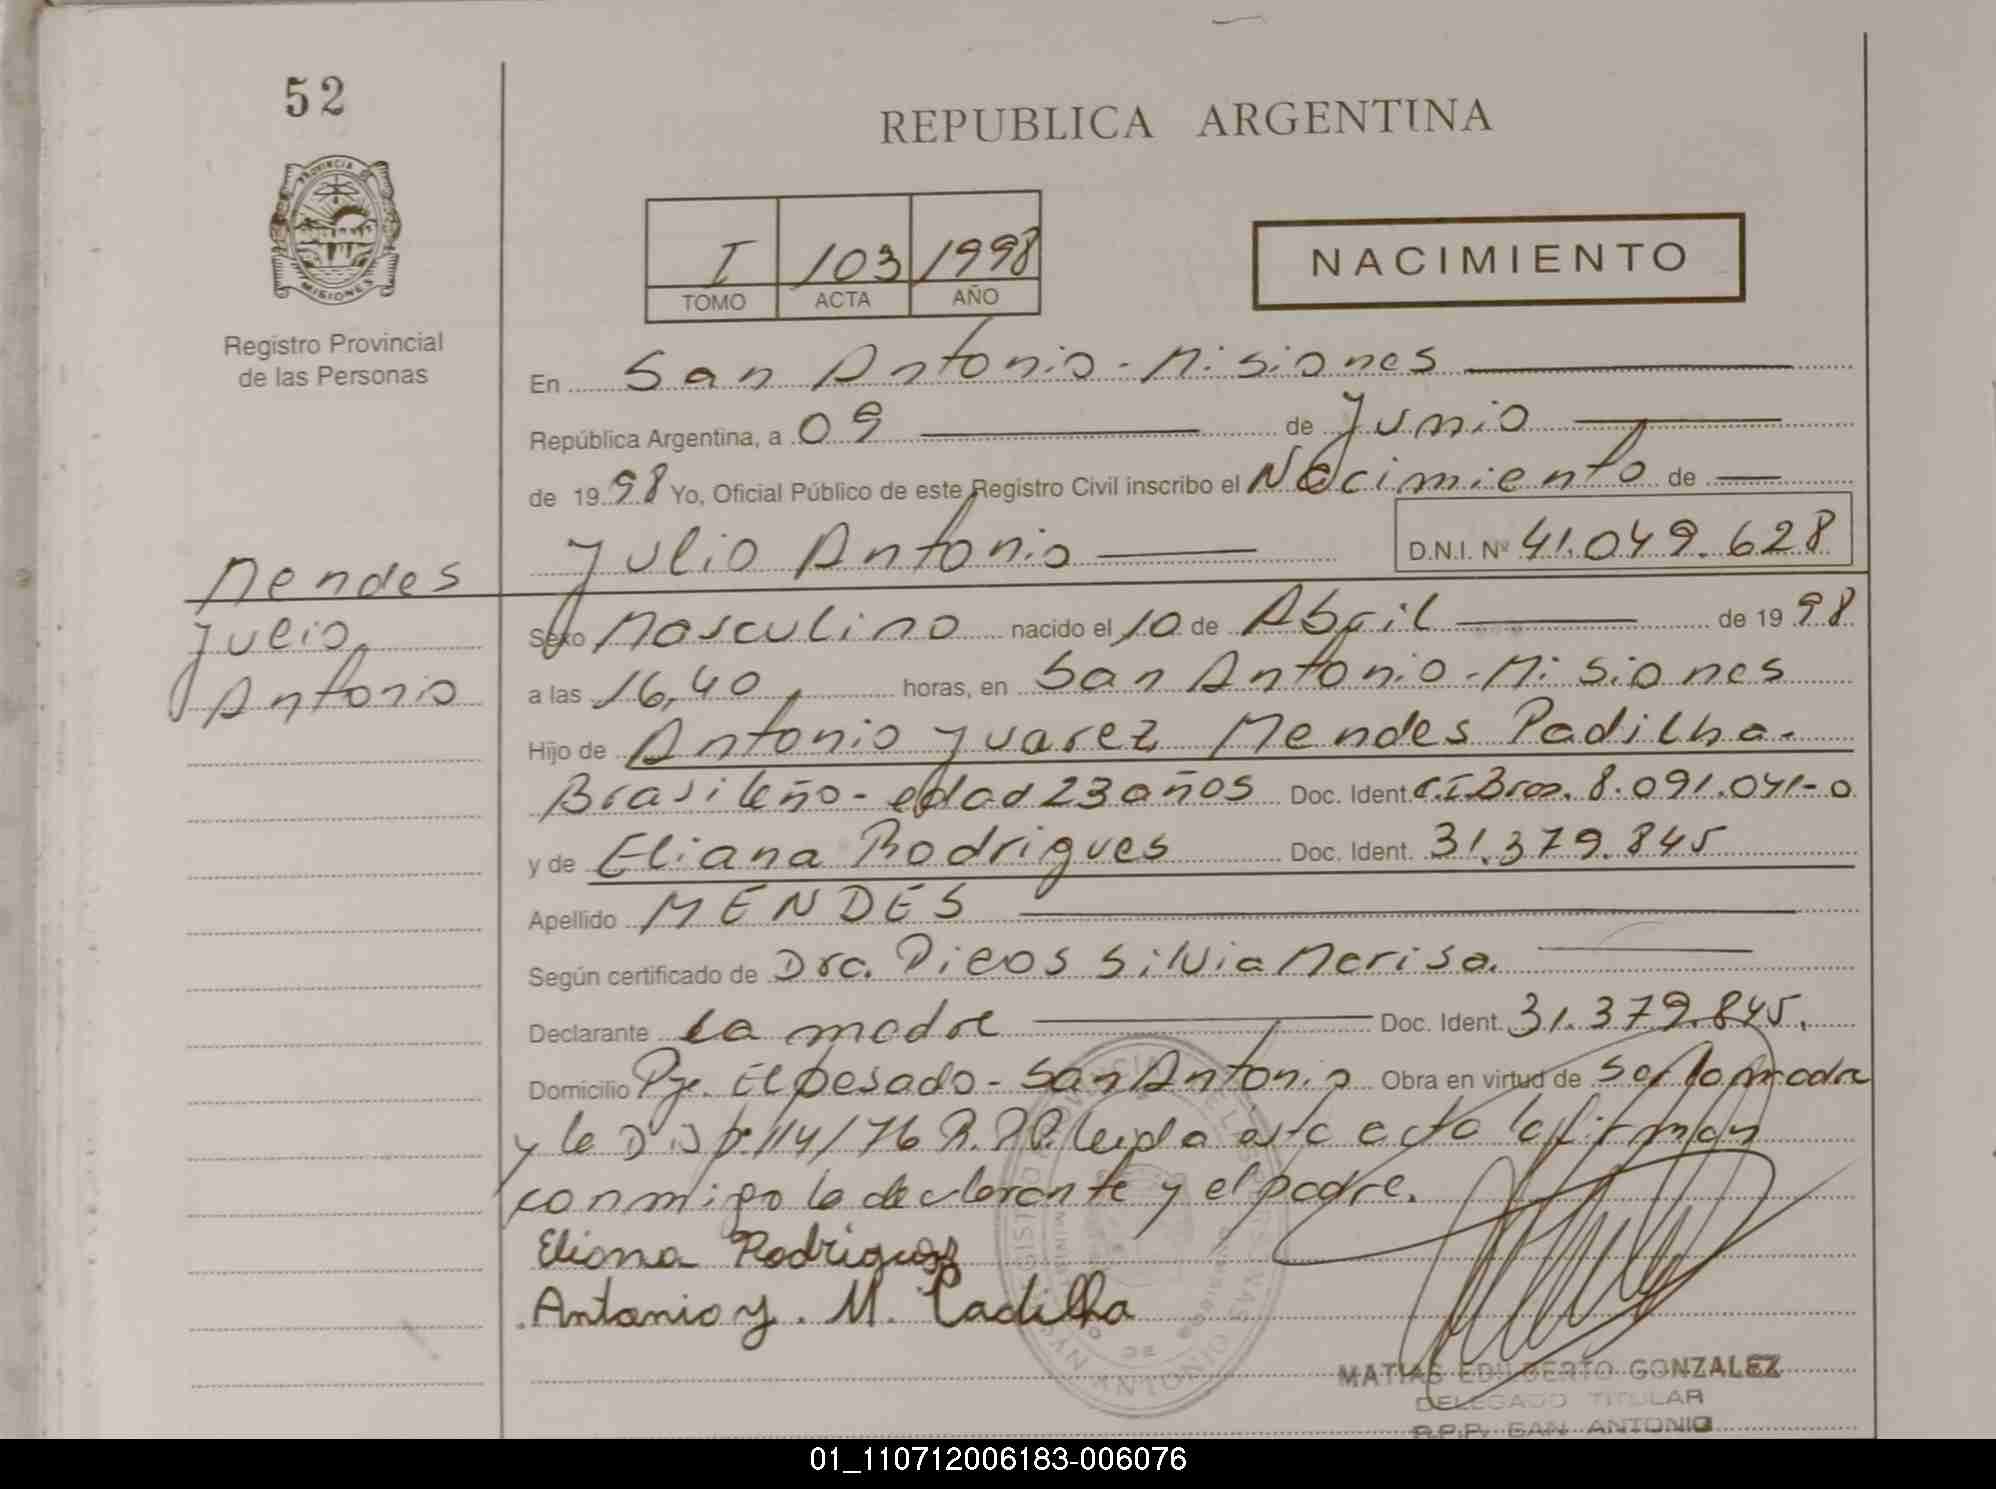 52
REPUBLICA ARGENTINA
PROVINCIA DE
MISIONES
I 103 1998
TOMO ACTA AÑO
NACIMIENTO
Registro Provincial
de las Personas
En San Antonio - Misiones
República Argentina, a 09 de Junio
de 1998 Yo, Oficial Público de este Registro Civil inscribo el Nacimiento de
Julio Antonio D.N.I. Nº 41.049.628
Mendes
Julio
Antonio
Sexo Masculino nacido el 10 de Abril de 1998
a las 16,40 horas, en San Antonio - Misiones
Hijo de Antonio Yuarez Mendes Padilha.
Brasileño - edad 23 años Doc. Ident. C.I.Bra. 8.091.041-0
y de Eliana Rodrigues Doc. Ident. 31.379.845
Apellido MENDES
Según certificado de Dra. Silvia Marisa.
Declarante La madre Doc. Ident. 31.379.845.
Domicilio Pje. El pesado - San Antonio Obra en virtud de ser la madre
y la 114/76 leida esta acta la firman
conmigo la declarante y el padre.
Eliana Rodrigues
Antonio Y. M. Padilha
MATIAS EDILBERTO GONZALEZ
DELEGADO TITULAR
R.P.P. SAN ANTONIO
01_110712006183-006076